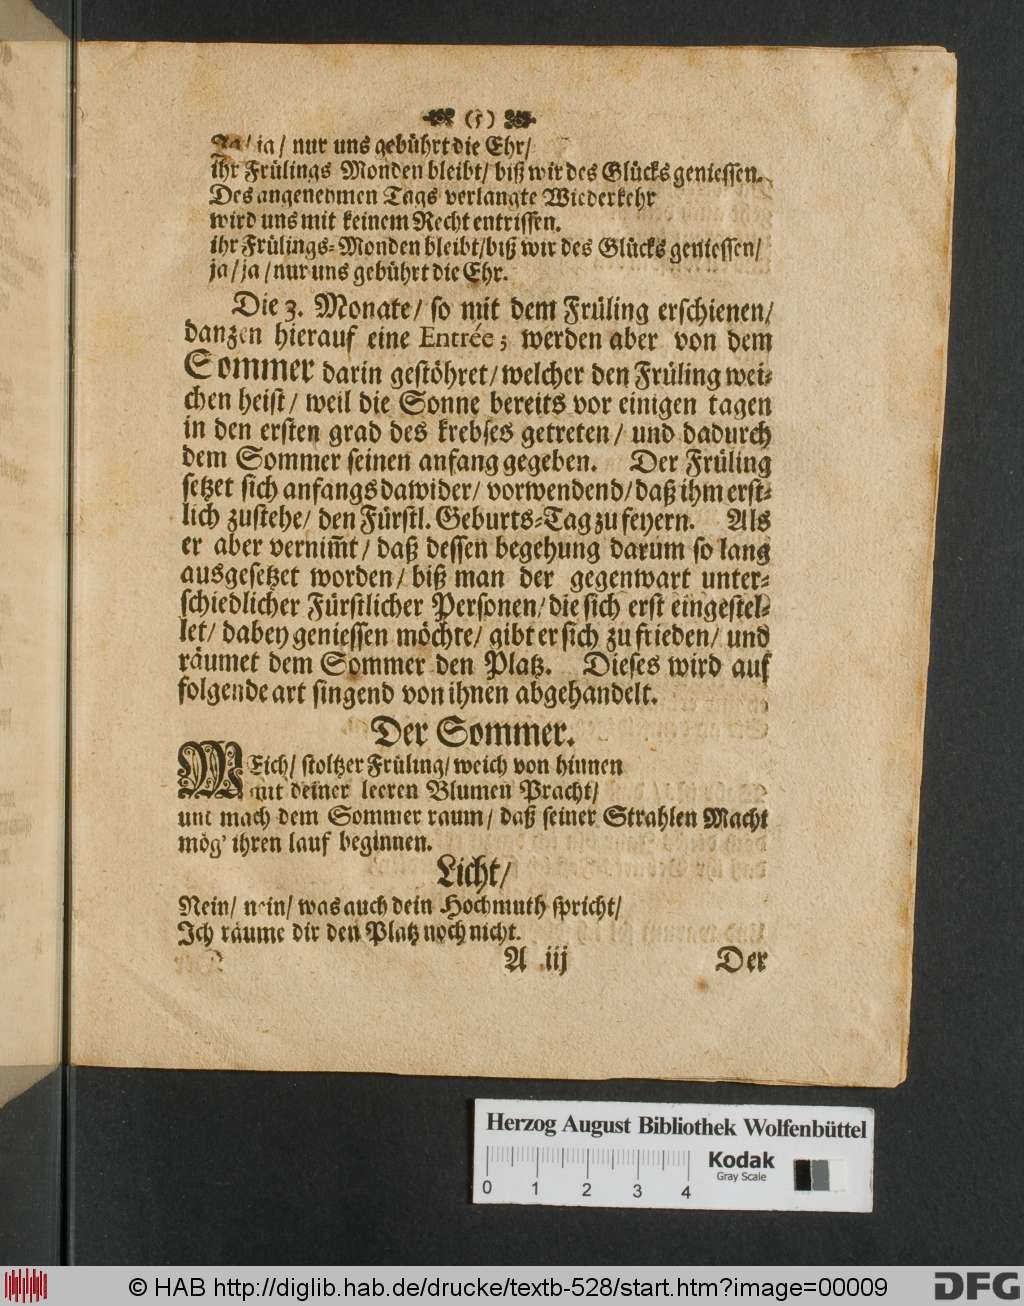 (5)
Ja/ ja/ nur uns gebührt die Ehr/
ihr Frülings Monden bleibt/ biß wir des Glücks geniessen.
Des angenehmen Tags verlangte Wiederkehr
wird uns mit keinem Recht entrissen.
ihr Frülings-Monden bleibt/ biß wir des Glücks geniessen/
ja/ ja/ nur uns gebührt die Ehr.
Die 3. Monate/ so mit dem Früling erschienen/
danzen hierauf eine Entrée; werden aber von dem
Sommer darin gestöhret/ welcher den Früling wei-
chen heist/ weil die Sonne bereits vor einigen tagen
in den ersten grad des krebses getreten/ und dadurch
dem Sommer seinen anfang gegeben. Der Früling
setzet sich anfangs dawider/ vorwendend/ daß ihm erst-
lich zustehe/ den Fürstl. Geburts-Tag zu feyern. Als
er aber vernim̃t/ daß dessen begehung darum so lang
ausgesetzet worden/ biß man der gegenwart unter-
schiedlicher Fürstlicher Personen/ die sich erst eingestel-
let/ dabey geniessen möchte/ gibt er sich zu frieden/ und
räumet dem Sommer den Platz. Dieses wird auf
folgende art singend von ihnen abgehandelt.
Der Sommer.
WEich/ stoltzer Früling/ weich von hinnen
mit deiner leeren Blumen Pracht/
und mach dem Sommer raum/ daß seiner Strahlen Macht
mög' ihren lauf beginnen.
Licht/
Nein/ nein/ was auch dein Hochmuth spricht/
Ich räume dir den Platz noch nicht.
A iij Der
Herzog August Bibliothek Wolfenbüttel
Kodak
Gray Scale
0 1 2 3 4
© HAB http://diglib.hab.de/drucke/textb-528/start.htm?image=00009
DFG